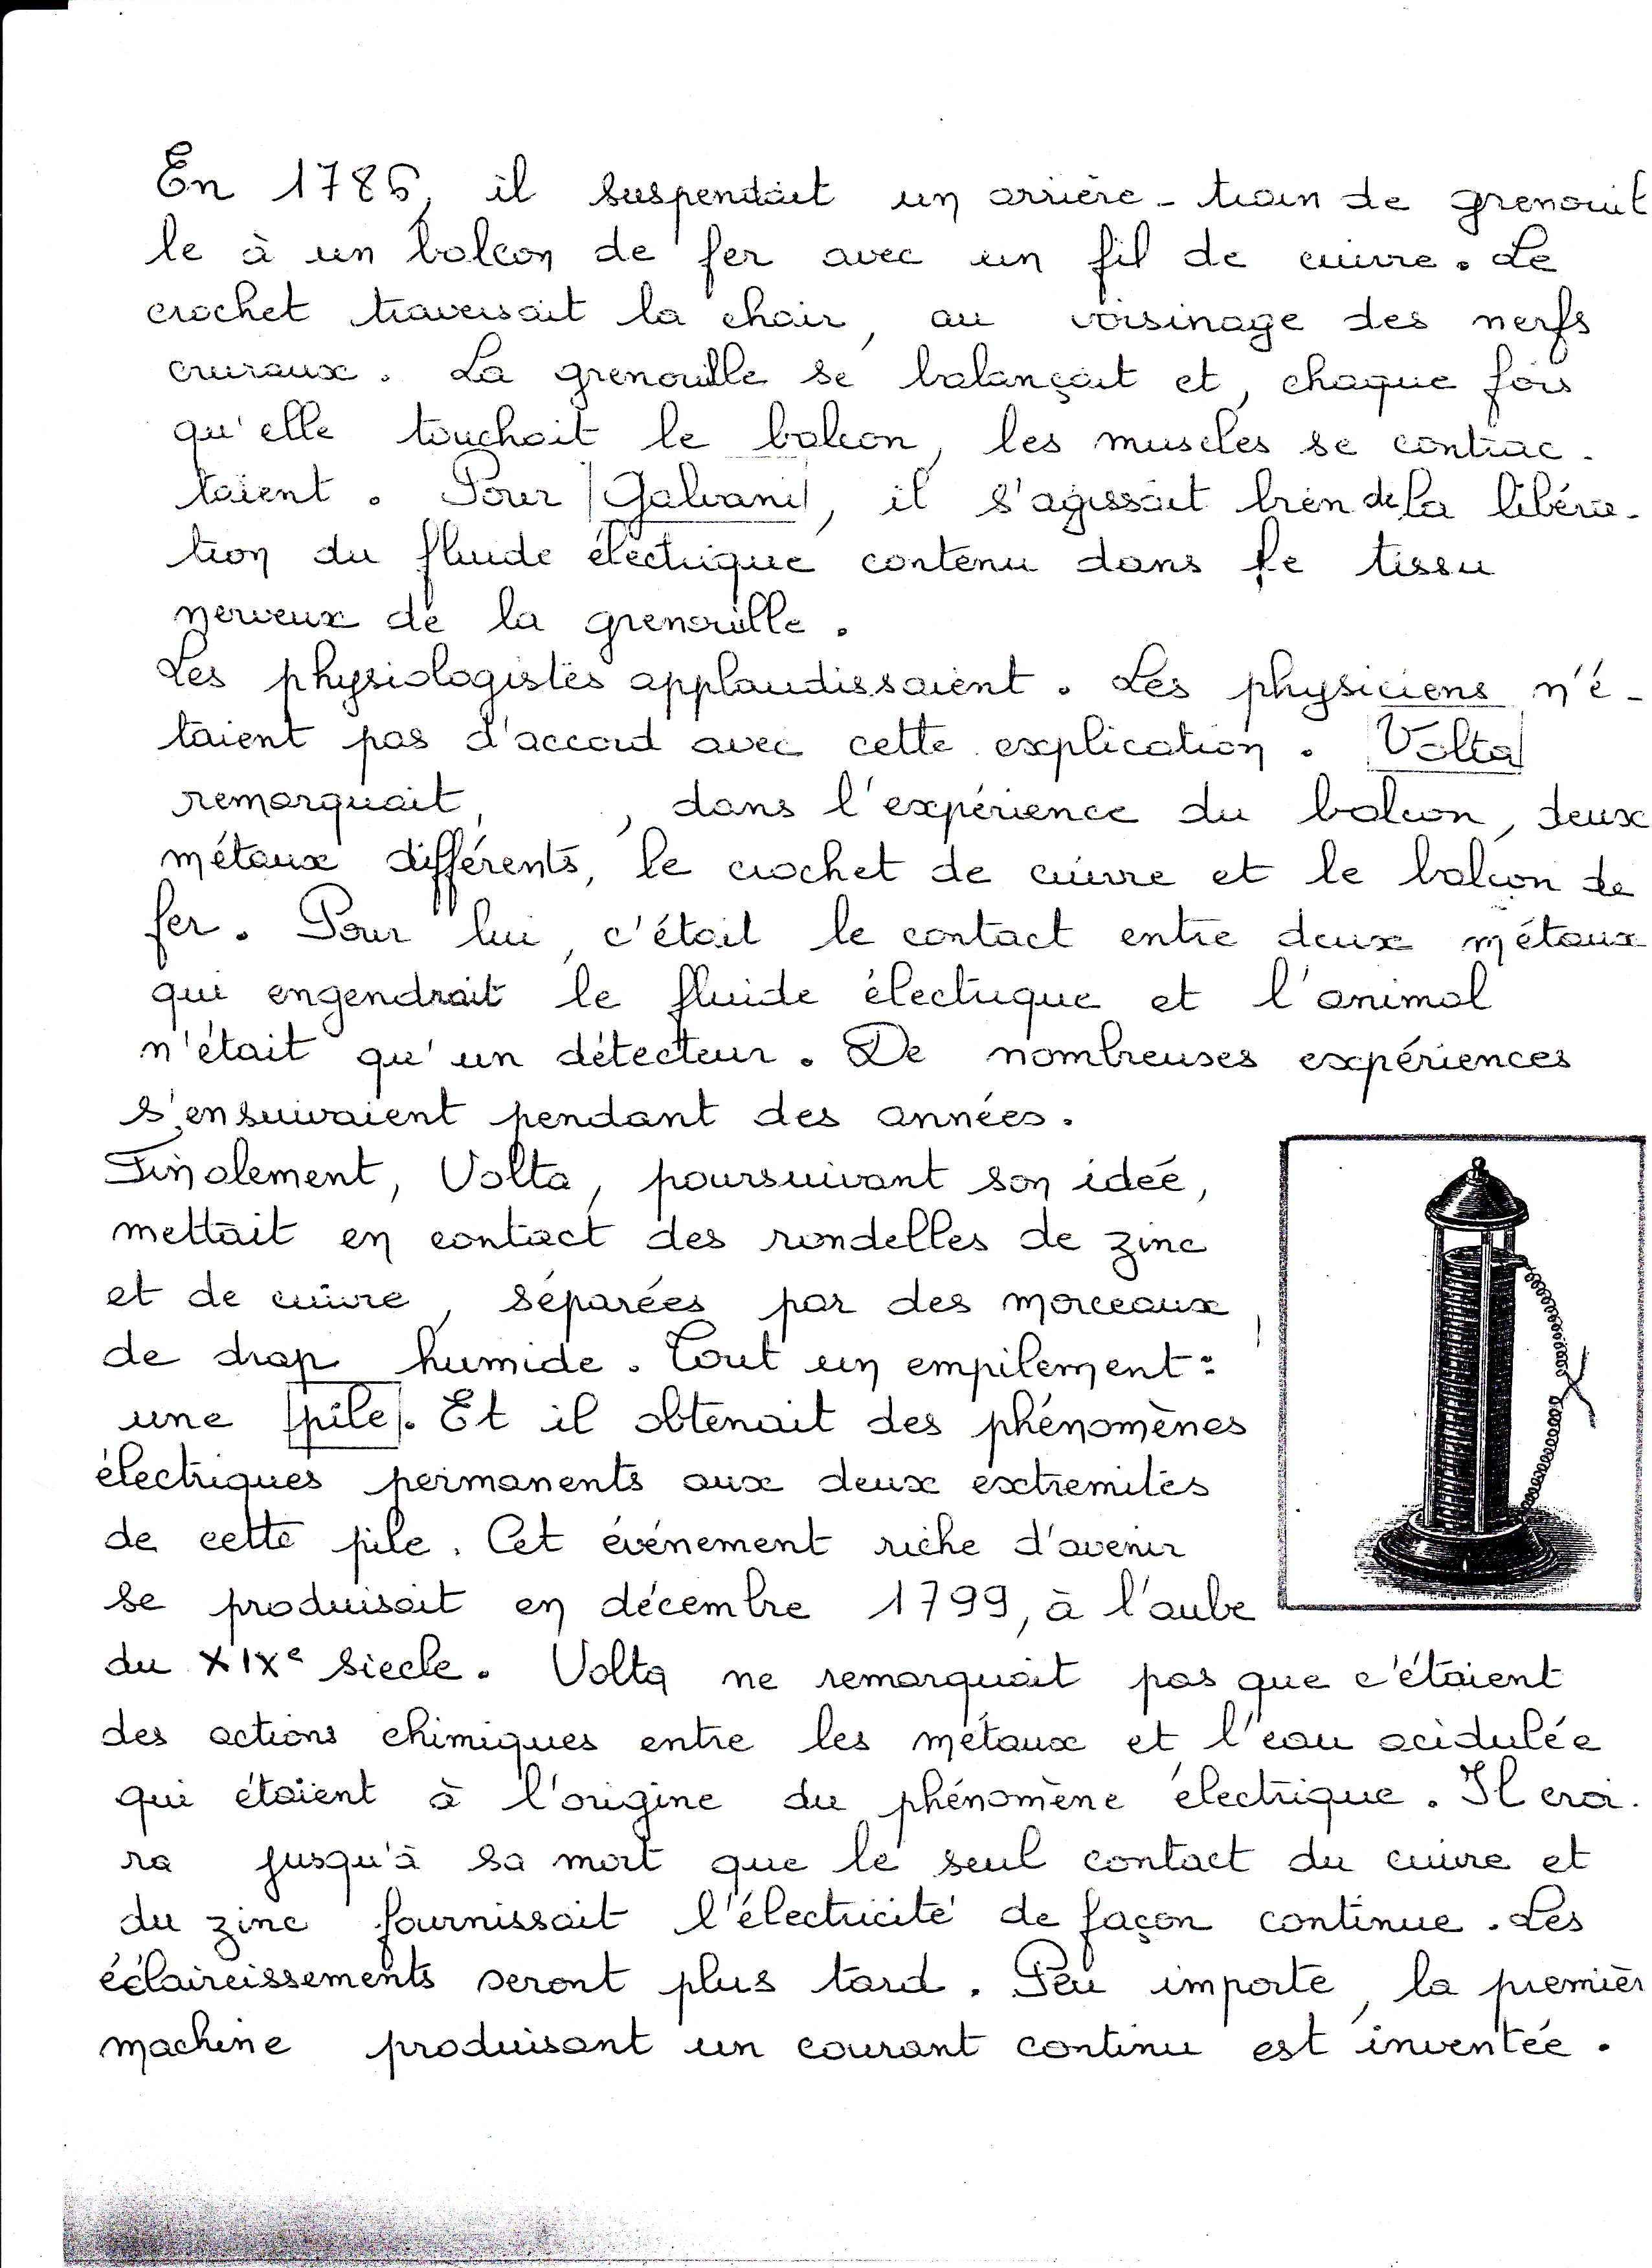 En 1786, il suspendait un arrière-train de grenouil
le à un balcon de fer avec un fil de cuivre. Le
crochet traversait la chair, au voisinage des nerfs
cruraux. La grenouille se balançait et, chaque fois
qu'elle touchait le balcon, les muscles se contrac-
taient. Pour Galvani, il s'agissait bien de la libéra-
tion du fluide électrique contenu dans le tissu
nerveux de la grenouille.
Les physiologistes applaudissaient. Les physiciens n'é-
taient pas d'accord avec cette explication. Volta
remarquait, , dans l'expérience du balcon, deux
métaux différents, le crochet de cuivre et le balcon de
fer. Pour lui, c'était le contact entre deux métaux
qui engendrait le fluide électrique et l'animal
n'était qu'un détecteur. De nombreuses expériences
s'ensuivaient pendant des années.
Finalement, Volta, poursuivant son idée,
mettait en contact des rondelles de zinc
et de cuivre, séparées par des morceaux
de drap humide. Tout un empilement:
une pile. Et il obtenait des phénomènes
électriques permanents aux deux extremités
de cette pile. Cet événement riche d'avenir
se produisait en décembre 1799, à l'aube
du XIXe siecle. Volta ne remarquait pas que c'étaient
des actions chimiques entre les métaux et l'eau acidulée
qui étaient à l'origine du phénomène électrique. Il croi-
ra jusqu'à sa mort que le seul contact du cuivre et
du zinc fournissait l'électricité de façon continue. Les
éclaircissements seront plus tard. Peu importe, la premièr
machine produisant un courant continu est inventée.